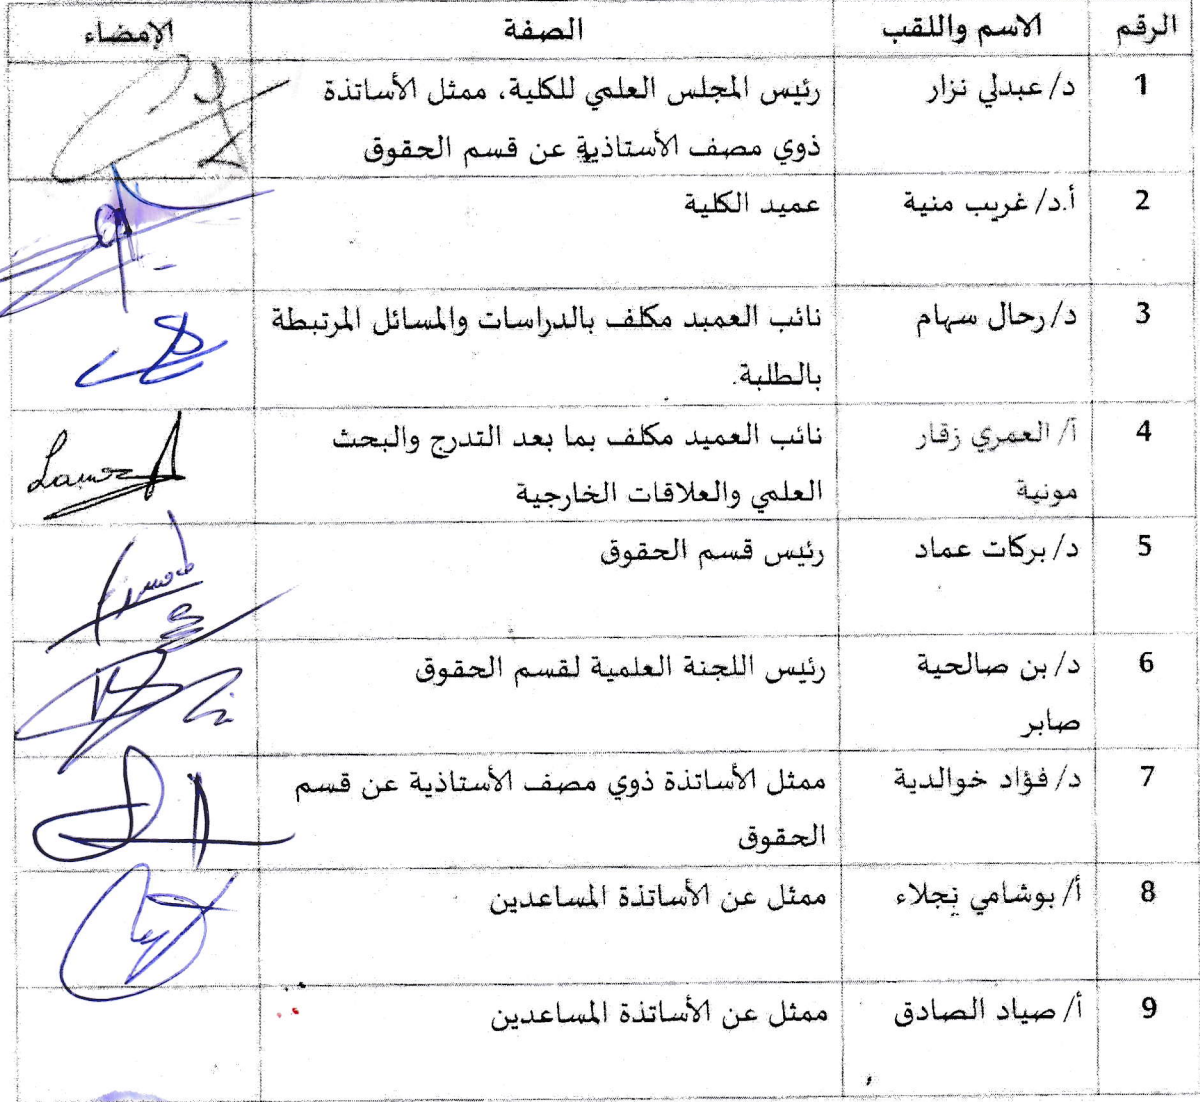 الرقم الاسم واللقب الصفة الإمضاء
1 د/ عبدلي نزار رئيس المجلس العلمي للكلية، ممثل الأساتذة
ذوي مصف الأستاذية عن قسم الحقوق
2 أ.د/ غريب منية عميد الكلية
3 د/ رحال سهام نائب العميد مكلف بالدراسات والمسائل المرتبطة
بالطلبة.
4 أ/ العمري زقار نائب العميد مكلف بما بعد التدرج والبحث
مونية العلمي والعلاقات الخارجية
5 د/ بركات عماد رئيس قسم الحقوق
6 د/ بن صالحية رئيس اللجنة العلمية لقسم الحقوق
صابر
7 د/ فؤاد خوالدية ممثل الأساتذة ذوي مصف الأستاذية عن قسم
الحقوق
8 أ/ بوشامي نجلاء ممثل عن الأساتذة المساعدين
9 أ/ صياد الصادق ممثل عن الأساتذة المساعدين